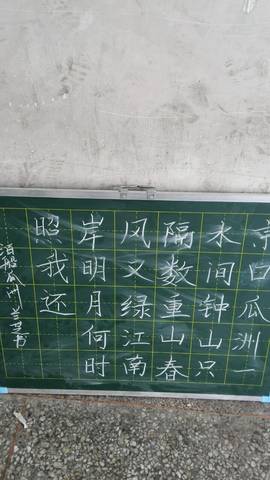 京口瓜洲一
水间钟山只
隔数重山春
风又绿江南
岸明月何时
照我还
泊船瓜 书